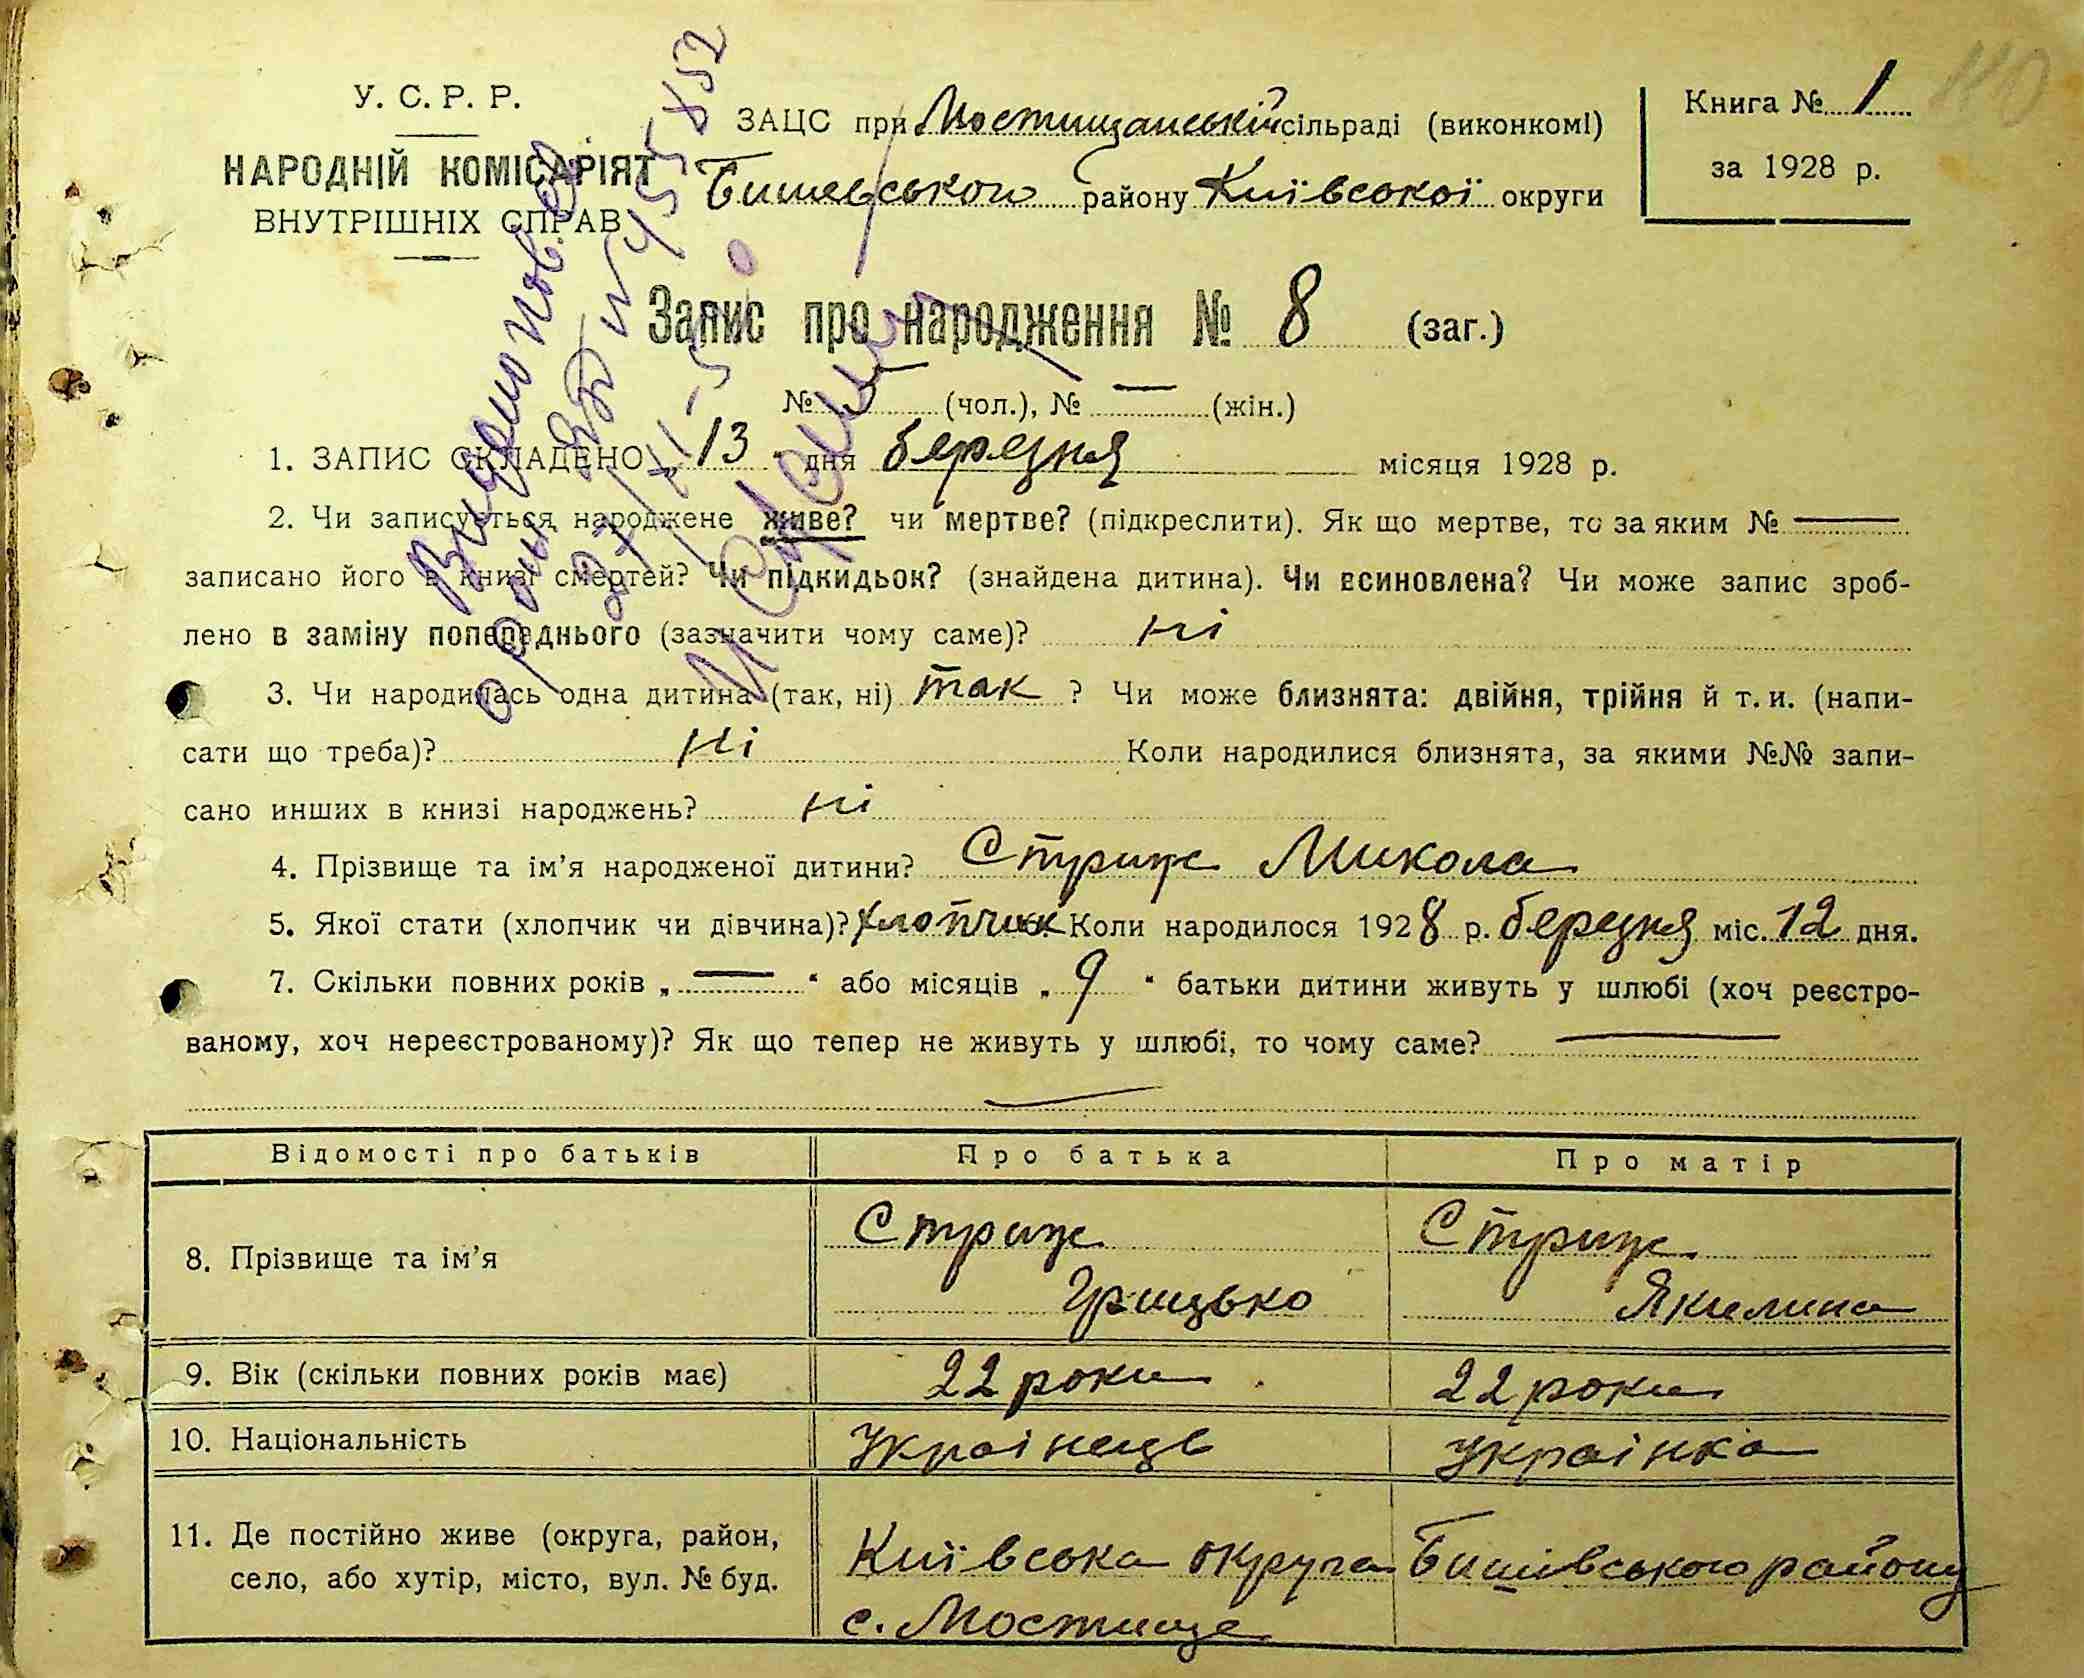 У. С. Р. Р.
НАРОДНІЙ КОМІСАРІЯТ
ВНУТРІШНІХ СПРАВ
ЗАЦС при Мостищанській сільраді (виконкомі)
Бишевського району Київської округи
Книга № 1
за 1928 р.
110
Запис про народження № 8 (заг.)
№ 5 (чол.), № — (жін.)
1. ЗАПИС СКЛАДЕНО „13" дня березня місяця 1928 р.
2. Чи записується народжене живе? чи мертве? (підкреслити). Як що мертве, то за яким № —
записано його в книзі смертей? Чи підкидьок? (знайдена дитина). Чи всиновлена? Чи може запис зроб-
лено в заміну попереднього (зазначити чому саме)? ні
3. Чи народилась одна дитина (так, ні) так ? Чи може близнята: двійня, трійня й т. и. (напи-
сати що треба)? ні Коли народилися близнята, за якими №№ запи-
сано инших в книзі народжень? ні
4. Прізвище та ім'я народженої дитини? Стриж Микола
5. Якої стати (хлопчик чи дівчина)? хлопчик Коли народилося 1928 р. березня міс. 12 дня.
7. Скільки повних років „—" або місяців „9" батьки дитини живуть у шлюбі (хоч реєстро-
ваному, хоч нереєстрованому)? Як що тепер не живуть у шлюбі, то чому саме? —
—
Відомості про батьків Про батька Про матір
8. Прізвище та ім'я Стриж Грицько Стриж Якилина
9. Вік (скільки повних років має) 22 роки 22 роки
10. Національність Українець Українка
11. Де постійно живе (округа, район,
село, або хутір, місто, вул. № буд.
Київська округа Бишівського району
с. Мостище